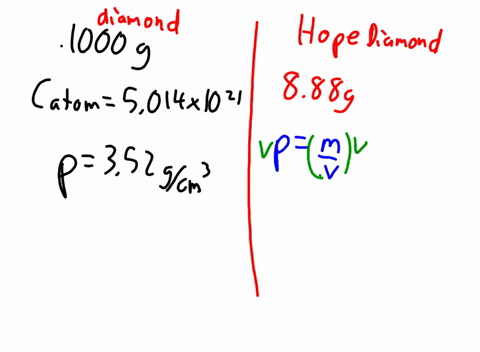 diamond
.1000 g
C atom = 5.014 x 10²¹
ρ = 3.52 g/cm³
Hope Diamond
8.88g
Vρ = (m/V)V